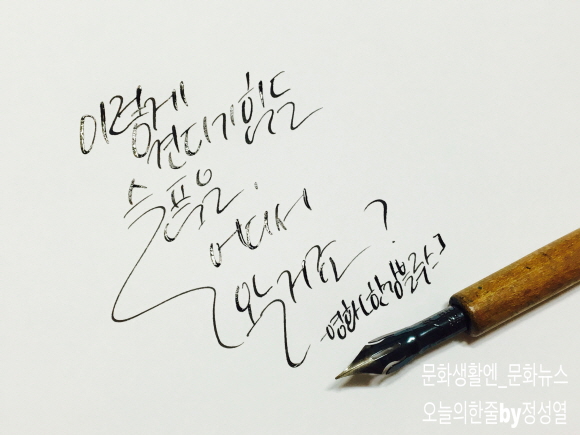 이렇게
견디기힘든
슬픔은,
어디서
온거죠 ?
-영화[한강블루스]
문화생활엔_문화뉴스
오늘의한줄by정성열